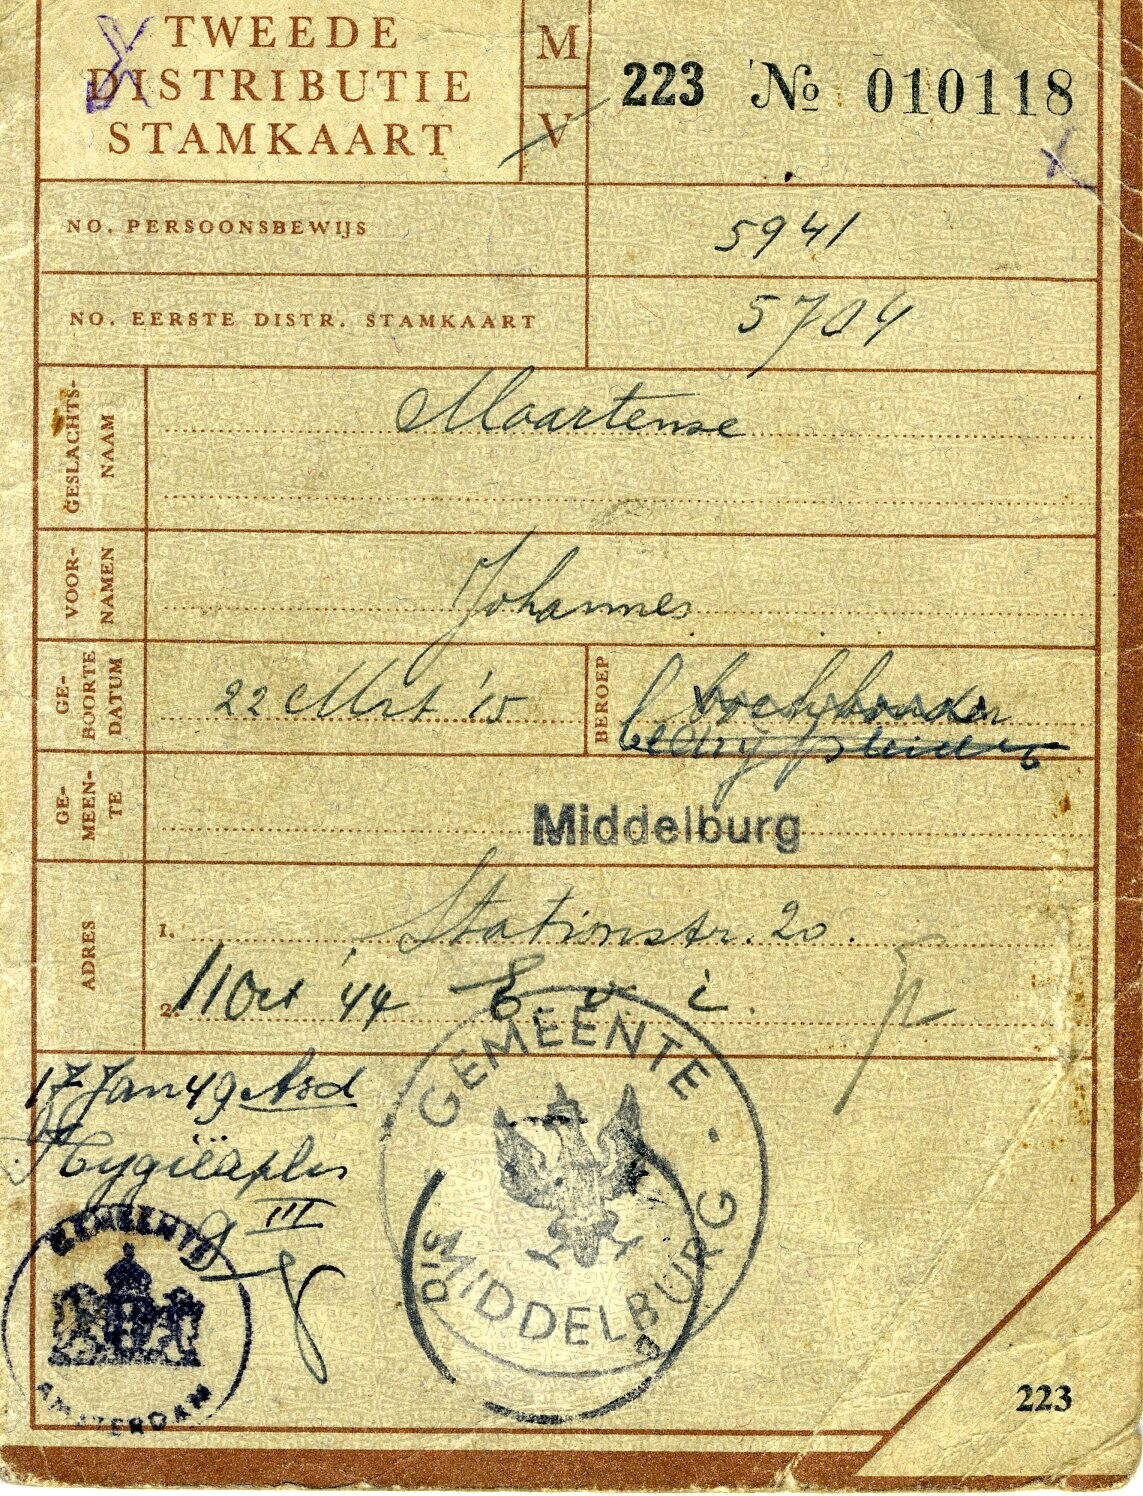 TWEEDE
DISTRIBUTIE
STAMKAART
M
V
223 № 010118
NO. PERSOONSBEWIJS
5941
NO. EERSTE DISTR. STAMKAART
5704
GESLACHTS-
NAAM
Maartense
VOOR-
NAMEN
Johannes
GE-
BOORTE
DATUM
22 Mrt '15
BEROEP
boekhouder
GE-
MEEN-
TE
Middelburg
ADRES
1. Stationstr. 20.
2. 11 Oct '44 E v i.
17 Jan 49 Asd
Hygiëapln
9 III
GEMEENTE
MIDDELBURG
DIS
GEMEENTE
AMSTERDAM
223